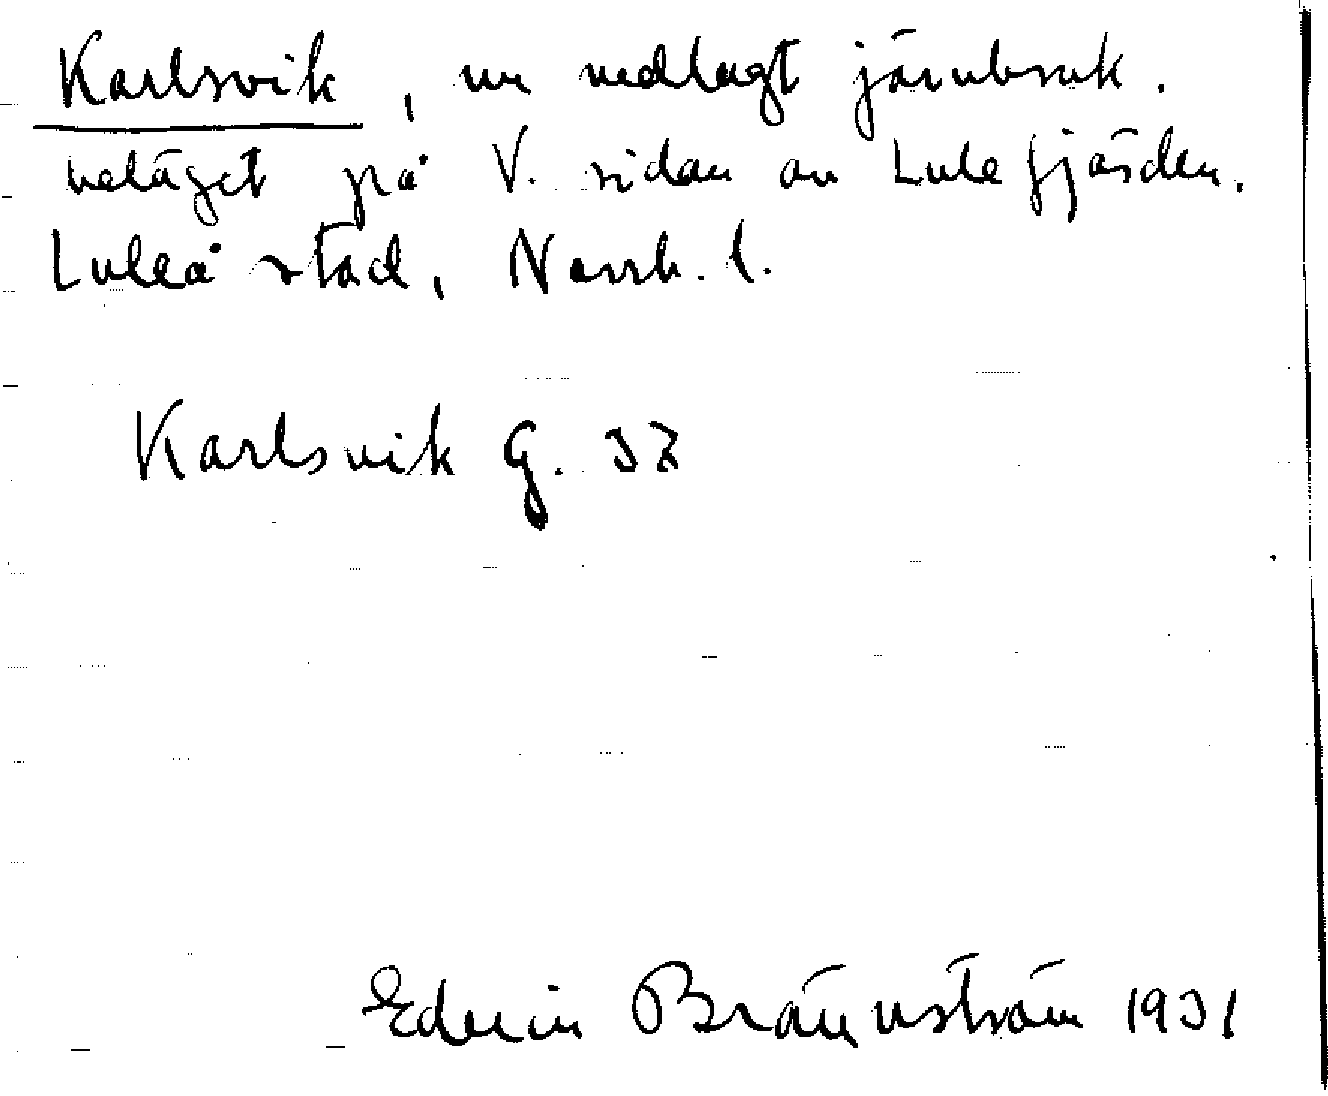 Karlsvik, nu nedlagt järnbruk.
beläget på V. sidan av Lulefjärden.
Luleå stad, Norrb. l.
Karlsvik G. 37
Edvin Brännström 1931